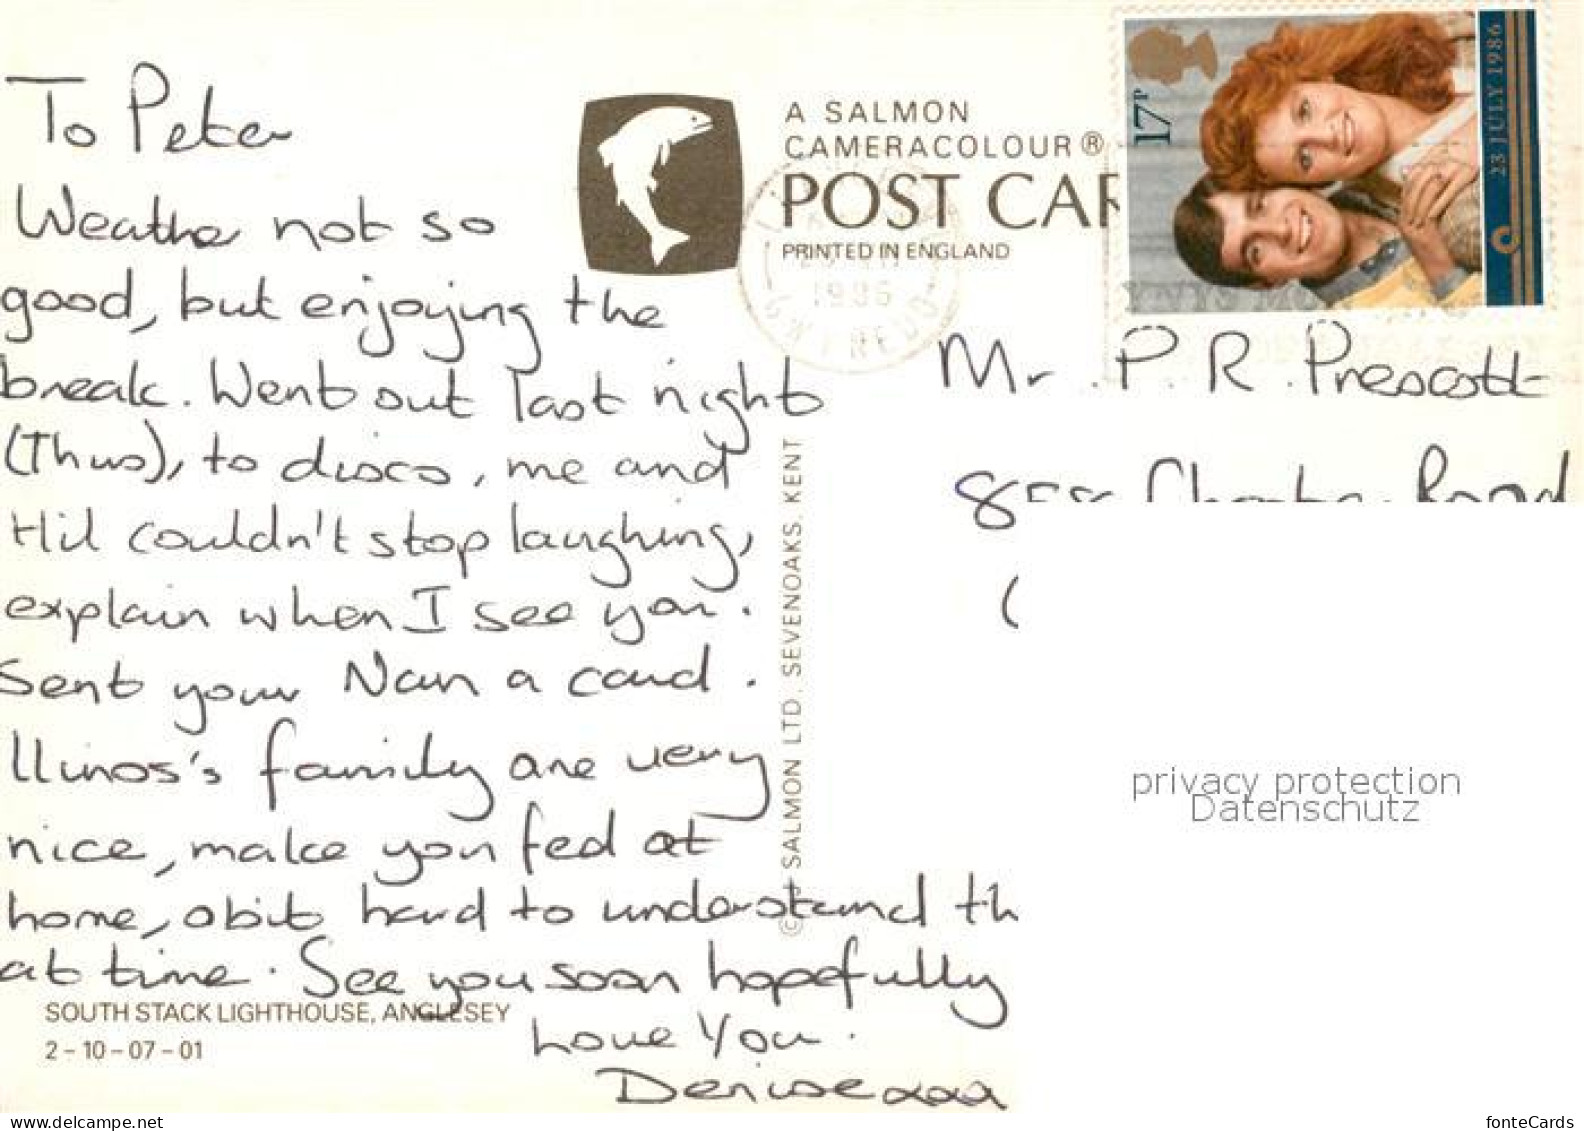 To Peter
Weather not so
good, but enjoying the
break. Went out last night
(Thus), to disco, me and
Hil couldn't stop laughing,
explain when I see you.
Sent your Nan a card.
Llinos's family are very
nice, make you fed at
home, abit hard to understand th
at time. See you soon hopefully
Love You.
Denise xxx
SOUTH STACK LIGHTHOUSE, ANGLESEY
2-10-07-01
A SALMON
CAMERACOLOUR®
POST CAR
PRINTED IN ENGLAND
© J SALMON LTD. SEVENOAKS. KENT
1986
GWYNEDD
17P
23 JULY 1986
Mr. P. R. Prescott
Road
privacy protection
Datenschutz
www.delcampe.net
fonteCards